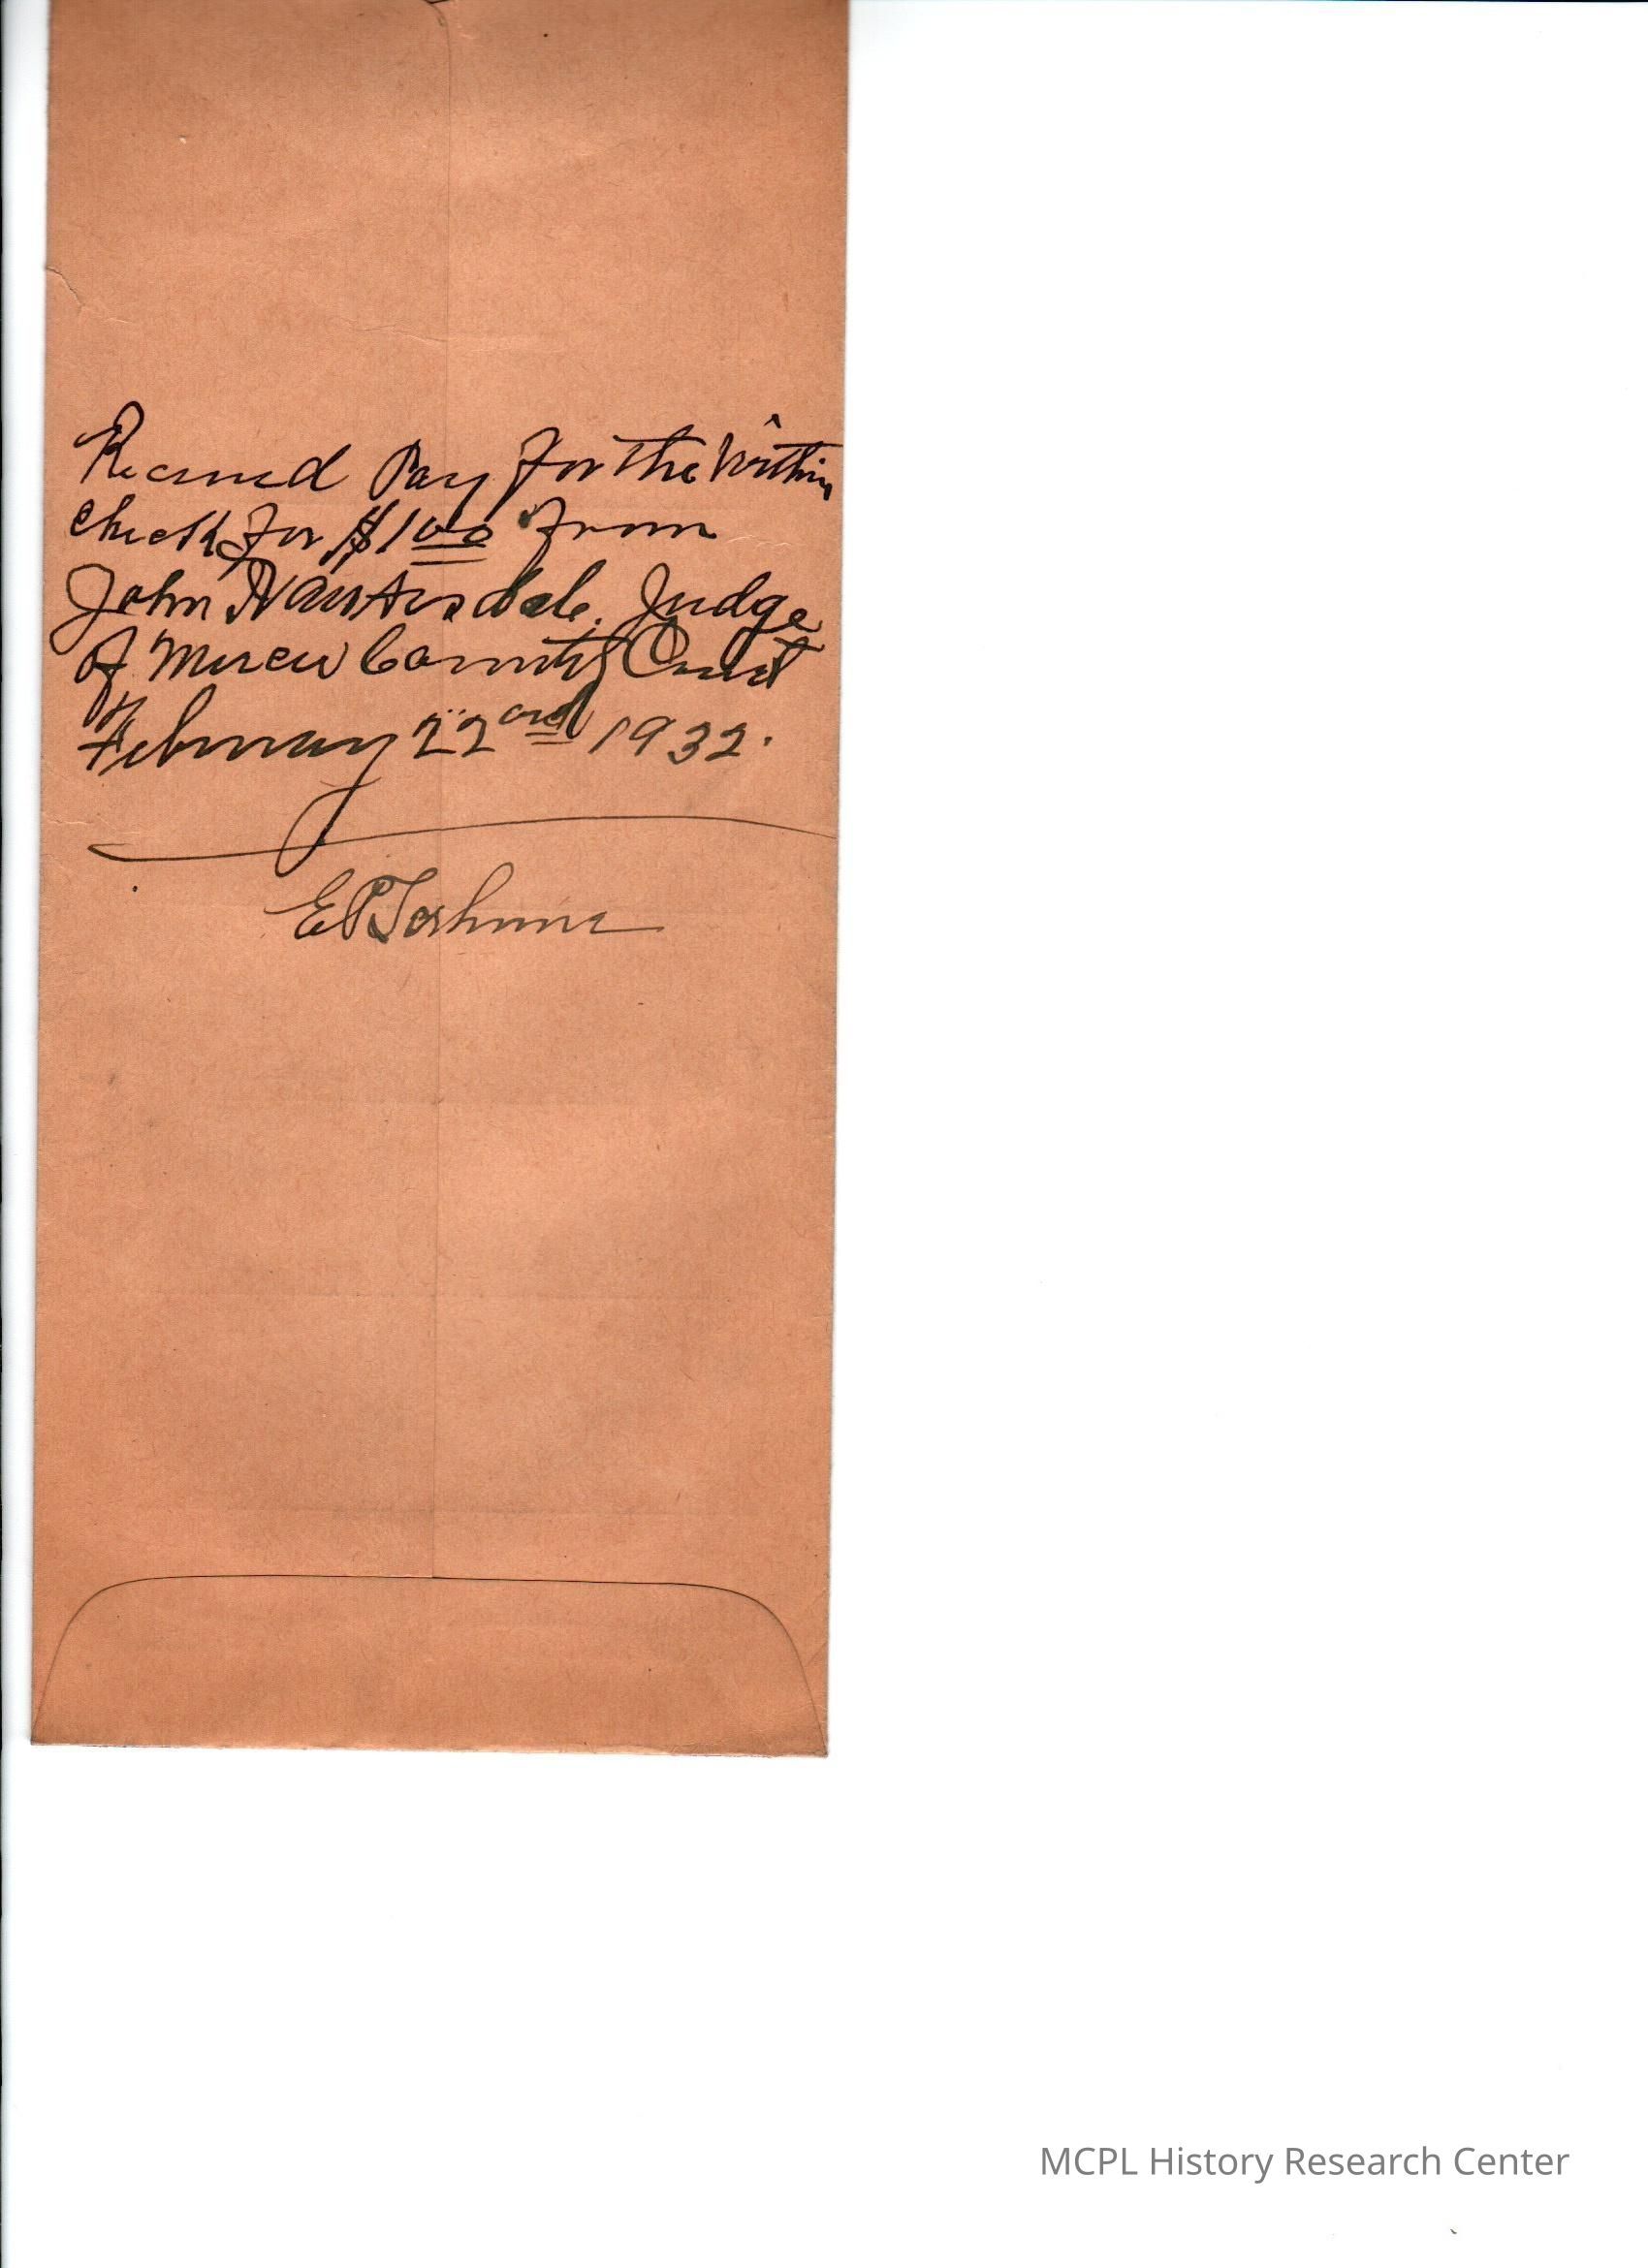 Received Pay for the Within
check for $100 from
John Nantersdale, Judge
of Mercer County Court
February 22nd 1932.
E P Terhune
MCPL History Research Center